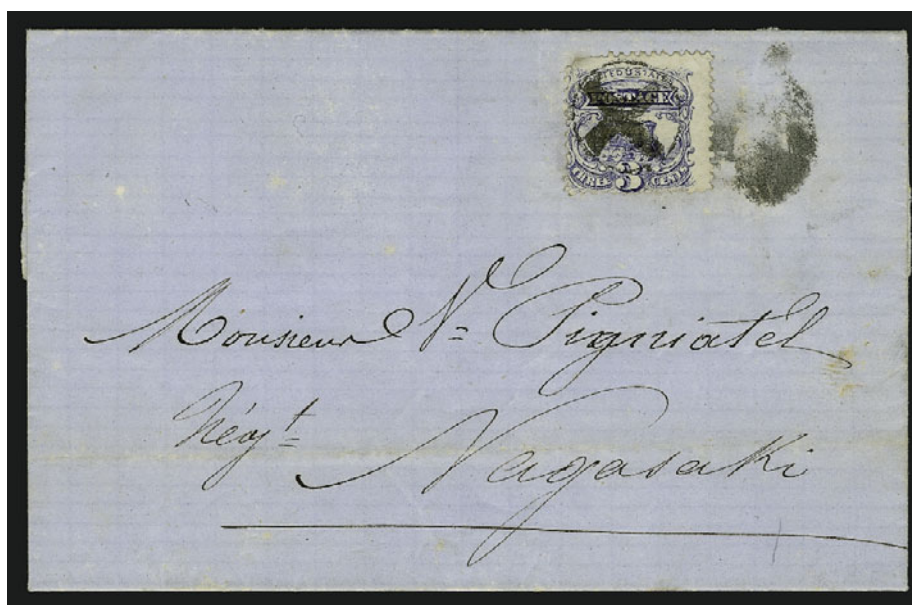 UNITED STATES
POSTAGE
THREE 3 CENTS
Monsieur Vr. Pigniatel
Négt.
Nagasaki